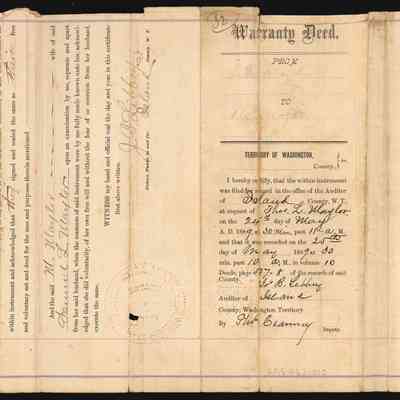 32
Warranty Deed.
FROM
TO
TERRITORY OF WASHINGTON,
County,
I hereby certify, that the within instrument
was filed for record in the office of the Auditor
of Island County, W. T.
at request of Thos. L. Maylor
on the 24th day of May
A. D. 1889, at 30 Min. past 11 A. M.
and that it was recorded on the 25
day of May 1889 at 30
min. past 10 A. M., in volume 10
Deeds, page 577. of the records of said
County.
J. B. Libbey
Auditor of Island
County, Washington Territory
By Thos Cranney
Deputy.
within instrument and acknowledged that they signed and sealed the same as their free
and voluntary act and deed for the uses and purposes therein mentioned.
And the said M. Maylor wife of said
Samuel L. Maylor upon an examination by me, separate and apart
from her said husband, when the contents of said instrument were by me fully made known unto her, acknowl-
edged that she did voluntarily, of her own free will and without the fear of or coercion from her husband,
execute the same.
WITNESS my hand and official seal the day and year in this certificate
first above written.
J. B. Libbey
Island
County, W. T.